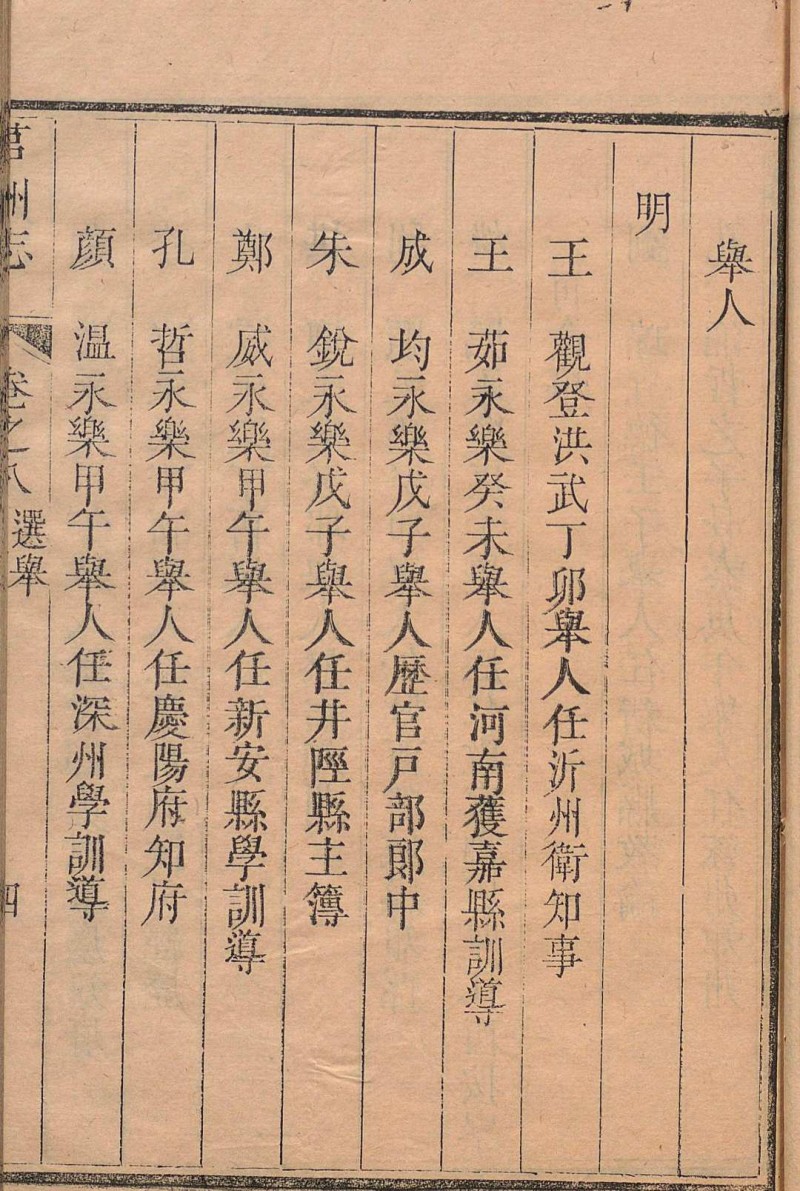 舉人
明
王 觀登洪武丁卯舉人任沂州衛知事
王 茹永樂癸未舉人任河南獲嘉縣訓導
成 均永樂戊子舉人歷官戸部郎中
朱 銳永樂戊子舉人任井陘縣主簿
鄭 威永樂甲午舉人任新安縣學訓導
孔 哲永樂甲午舉人任慶陽府知府
顏 溫永樂甲午舉人任深州學訓導
莒州志 卷之八 選舉 四